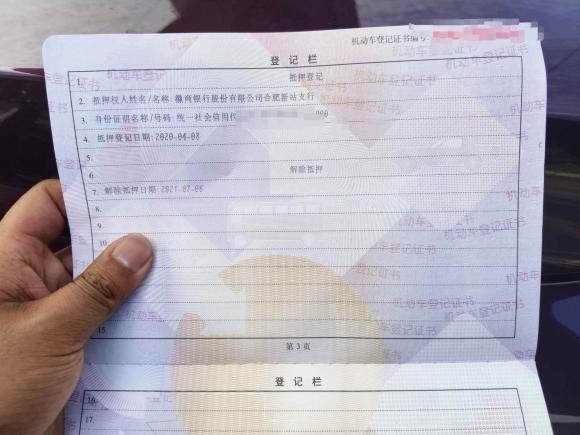 机动车登记证书编号:
登记栏
1. 抵押登记
2. 抵押权人姓名/名称:徽商银行股份有限公司合肥新站支行
3. 身份证明名称/号码:统一社会信用代
4. 抵押登记日期:2020-04-08
5.
6. 解除抵押
7. 解除抵押日期:2021-07-06
8.
9.
10
15.
第3页
登记栏
16.
17.
机动车登记证书
机动车登记证书
机动车登记证书
机动车登记证书